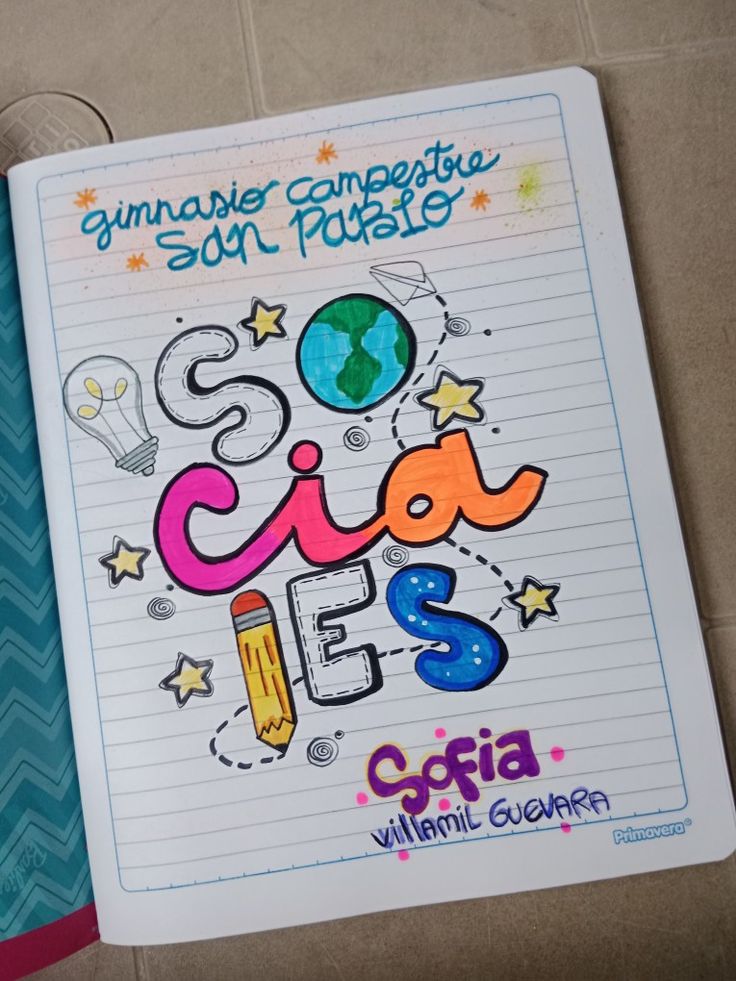 gimnasio campestre
SAN PABLO
SO
cia
lES
Sofia
villamil GUEVARA
Primavera®